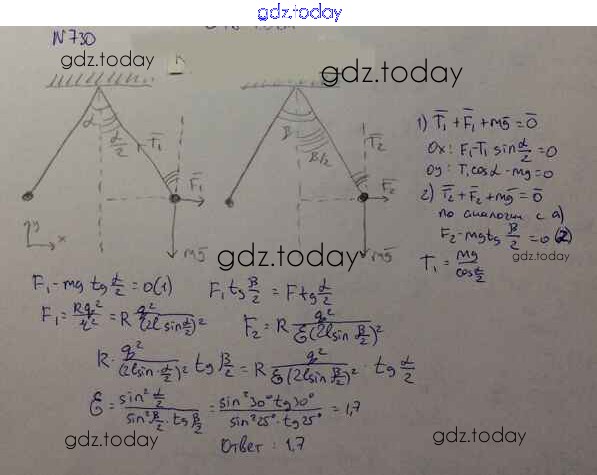 gdz.today
N 730
gdz.today
gdz.today
α
α/2
T̅₁
F̅₁
mg̅
y
x
β
β/2
T̅₂
F̅₂
mg̅
1) T̅₁ + F̅₁ + mg̅ = 0̅
Ox: F₁ - T₁ sin α/2 = 0
Oy: T₁ cos α - mg = 0
2) T̅₂ + F̅₂ + mg̅ = 0̅
по аналогии с а)
F₂ - mg tg β/2 = 0 (2)
T₁ = mg / cos α/2
gdz.today
gdz.today
F₁ - mg tg α/2 = 0 (1)
F₁ tg β/2 = F tg α/2
F₁ = kq²/r² = k q²/(2l sin α/2)²
F₂ = k q²/ε(2l sin β/2)²
k · q²/(2l sin · α/2)² · tg β/2 = k q²/ε(2l sin β/2)² · tg α/2
ε = sin² α/2 / sin² β/2 · tg β/2 = sin² 30° tg 30° / sin² 25° · tg 25° = 1,7
Ответ: 1,7
gdz.today
gdz.today